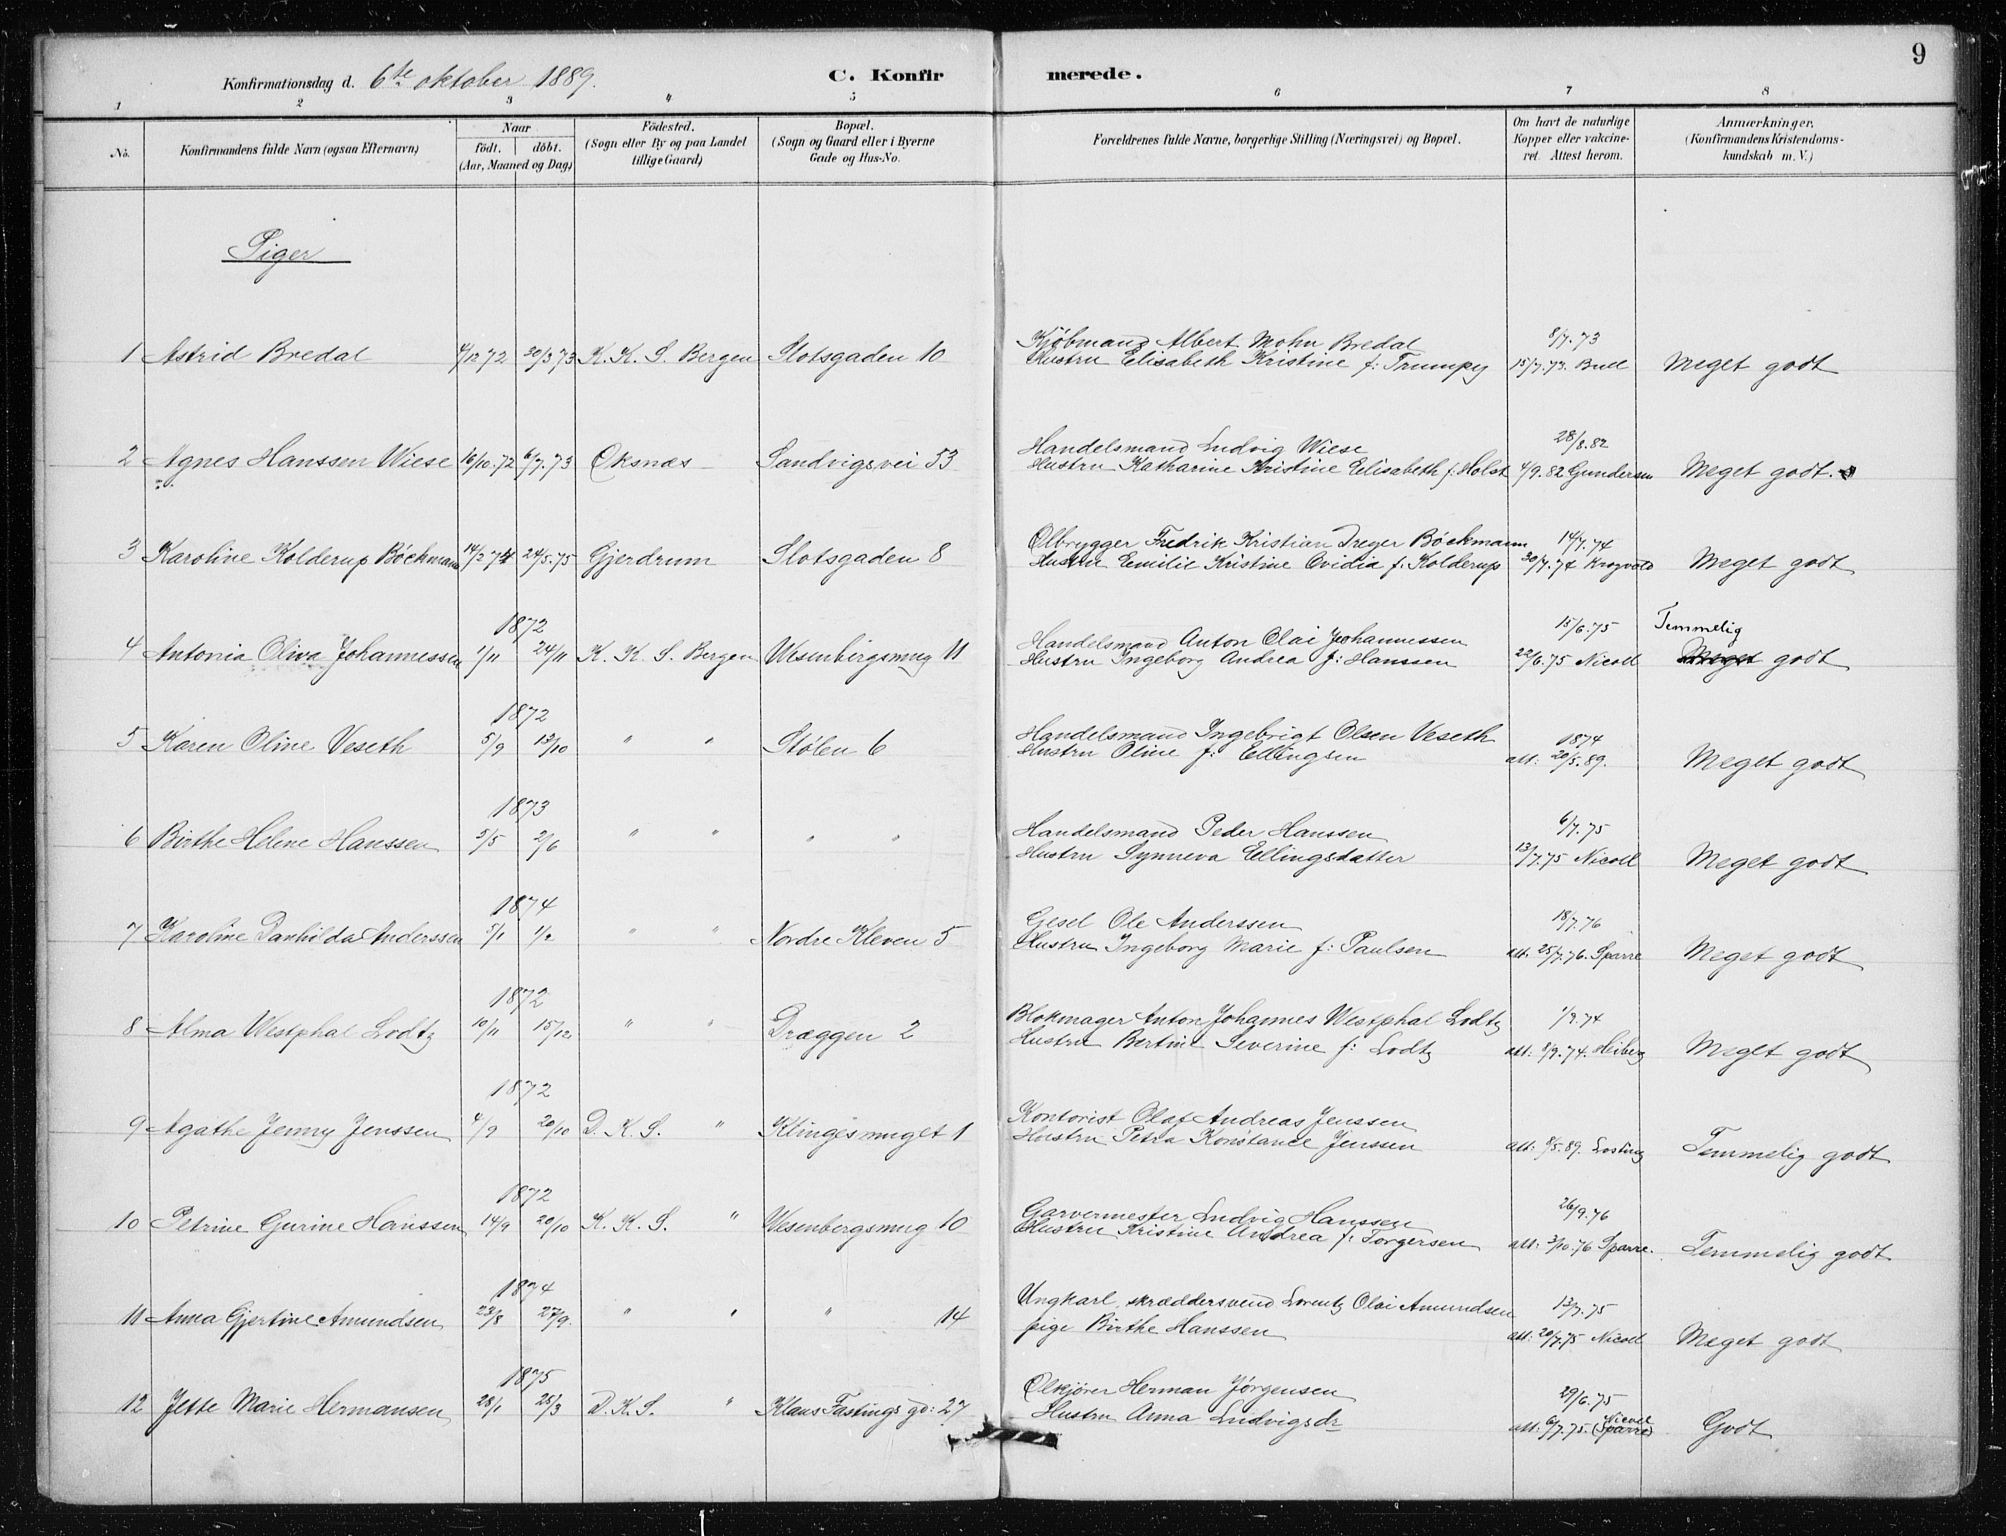 9
Konfirmationsdag d. 6te oktober 1889.
C. Konfirmerede.
1 2 3 4 5 6 7 8
No.
Konfirmandens fulde Navn (ogsaa Efternavn)
Naar
födt. döbt.
(Aar, Maaned og Dag)
Födested.
(Sogn eller By og paa Landet
tillige Gaard)
Bopæl.
(Sogn og Gaard eller i Byerne
Gade og Hus-No.
Forældrenes fulde Navne, borgerlige Stilling (Næringsvei) og Bopæl.
Om havt de naturlige
Kopper eller vakcine-
ret. Attest herom.
Anmærkninger,
(Konfirmandens Kristendoms-
kundskab m. V.)
Piger
Kjöbmand Albert Mohn Bredal 8/7.73
1 Astrid Bredal 4/12 72 30/3 73 K. K. S. Bergen Slotsgaden 10 Hustru Elisabeth Kristine f: Trumpy 15/7.73. Bull Meget godt
Handelsmand Ludvig Wiese 28/8.82
2 Agnes Hanssen Wiese 16/10.72 6/7.73 Öksnæs Sandvigsvei 53 Hustru Katharine Kristine Elisabeth f. Holst 4/9.82 Gundersen Meget godt.
Ölbrygger Fredrik Kristian Dreyer Böckmann 14/7.74
3 Karoline Kolderup Böckmann 14/2 74 24/5.75 Gjerdrum Slotsgaden 8 Hustru Emilie Kristine Ovidia f. Kolderup 20/7.74 Krogvold Meget godt
1872 Handelsmand Anton Olai Johannessen 15/6.75 Temmelig
4 Antonia Oliva Johannessen 1/11 24/11 K. K. S. Bergen Wesenbergsmug 11 Hustru Ingeborg Andrea f: Hanssen 22/6.75 Nicoll Meget godt
1872 Handelsmand Ingebrigt Olsen Veseth 1874
5 Karen Oline Veseth 5/9 13/10 " " Stölen 6 Hustru Oline f: Ellingsen att: 20/5.89. Meget godt
1873 Handelsmand Peder Hanssen 6/7.75
6 Birthe Helene Hanssen 5/5 2/6 " " " " Hustru Synneva Ellingsdatter 13/7.75 Nicoll Meget godt
1874 Gesel Ole Anderssen 18/7.76
7 Karoline Danhilda Anderssen 5/1 1/2 " " Nordre Kleven 5 Hustru Ingeborg Marie f: Paulsen att. 25/7.76. Sparre Meget godt
1872 Blokmager Anton Johannes Westphal Lodtz 1/9.74
8 Alma Westphal Lodtz 10/11 15/12 " " Dræggen 2 Hustru Bertine Severine f: Lodtz att: 8/9.74. Heiberg Meget godt
1872 Kontorist Olaf Andreas Jenssen
9 Agathe Jenny Jenssen 4/9 20/10 D. K. S. " Klingesmuget 1 Hustru Petra Konstance Jenssen att: 8/5.89. Losting Temmelig godt
1872 Garvermester Ludvig Hanssen 26/9.76
10 Petrine Gurine Hanssen 14/9 20/10 K. K. S. " Wesenbergsmug 10 Hustru Kristine Andrea f: Torgersen att: 3/10.76 Sparre. Temmelig godt
1874 Ungkarl, skræddersvend Lorentz Olai Amundsen 13/7.75
11 Anna Gjertine Amundsen 23/8 27/9. " " " 14 pige Birthe Hanssen att: 20/7.75 Nicoll Meget godt
1875 Ölkjörer Herman Jörgensen 29/6.75
12 Jette Marie Hermansen 28/1 25/3 D. K. S. " Klaus Fastings gd: 27 Hustru Anna Ludvigsdr att: 6/7.75. Nicoll (Sparre) Godt